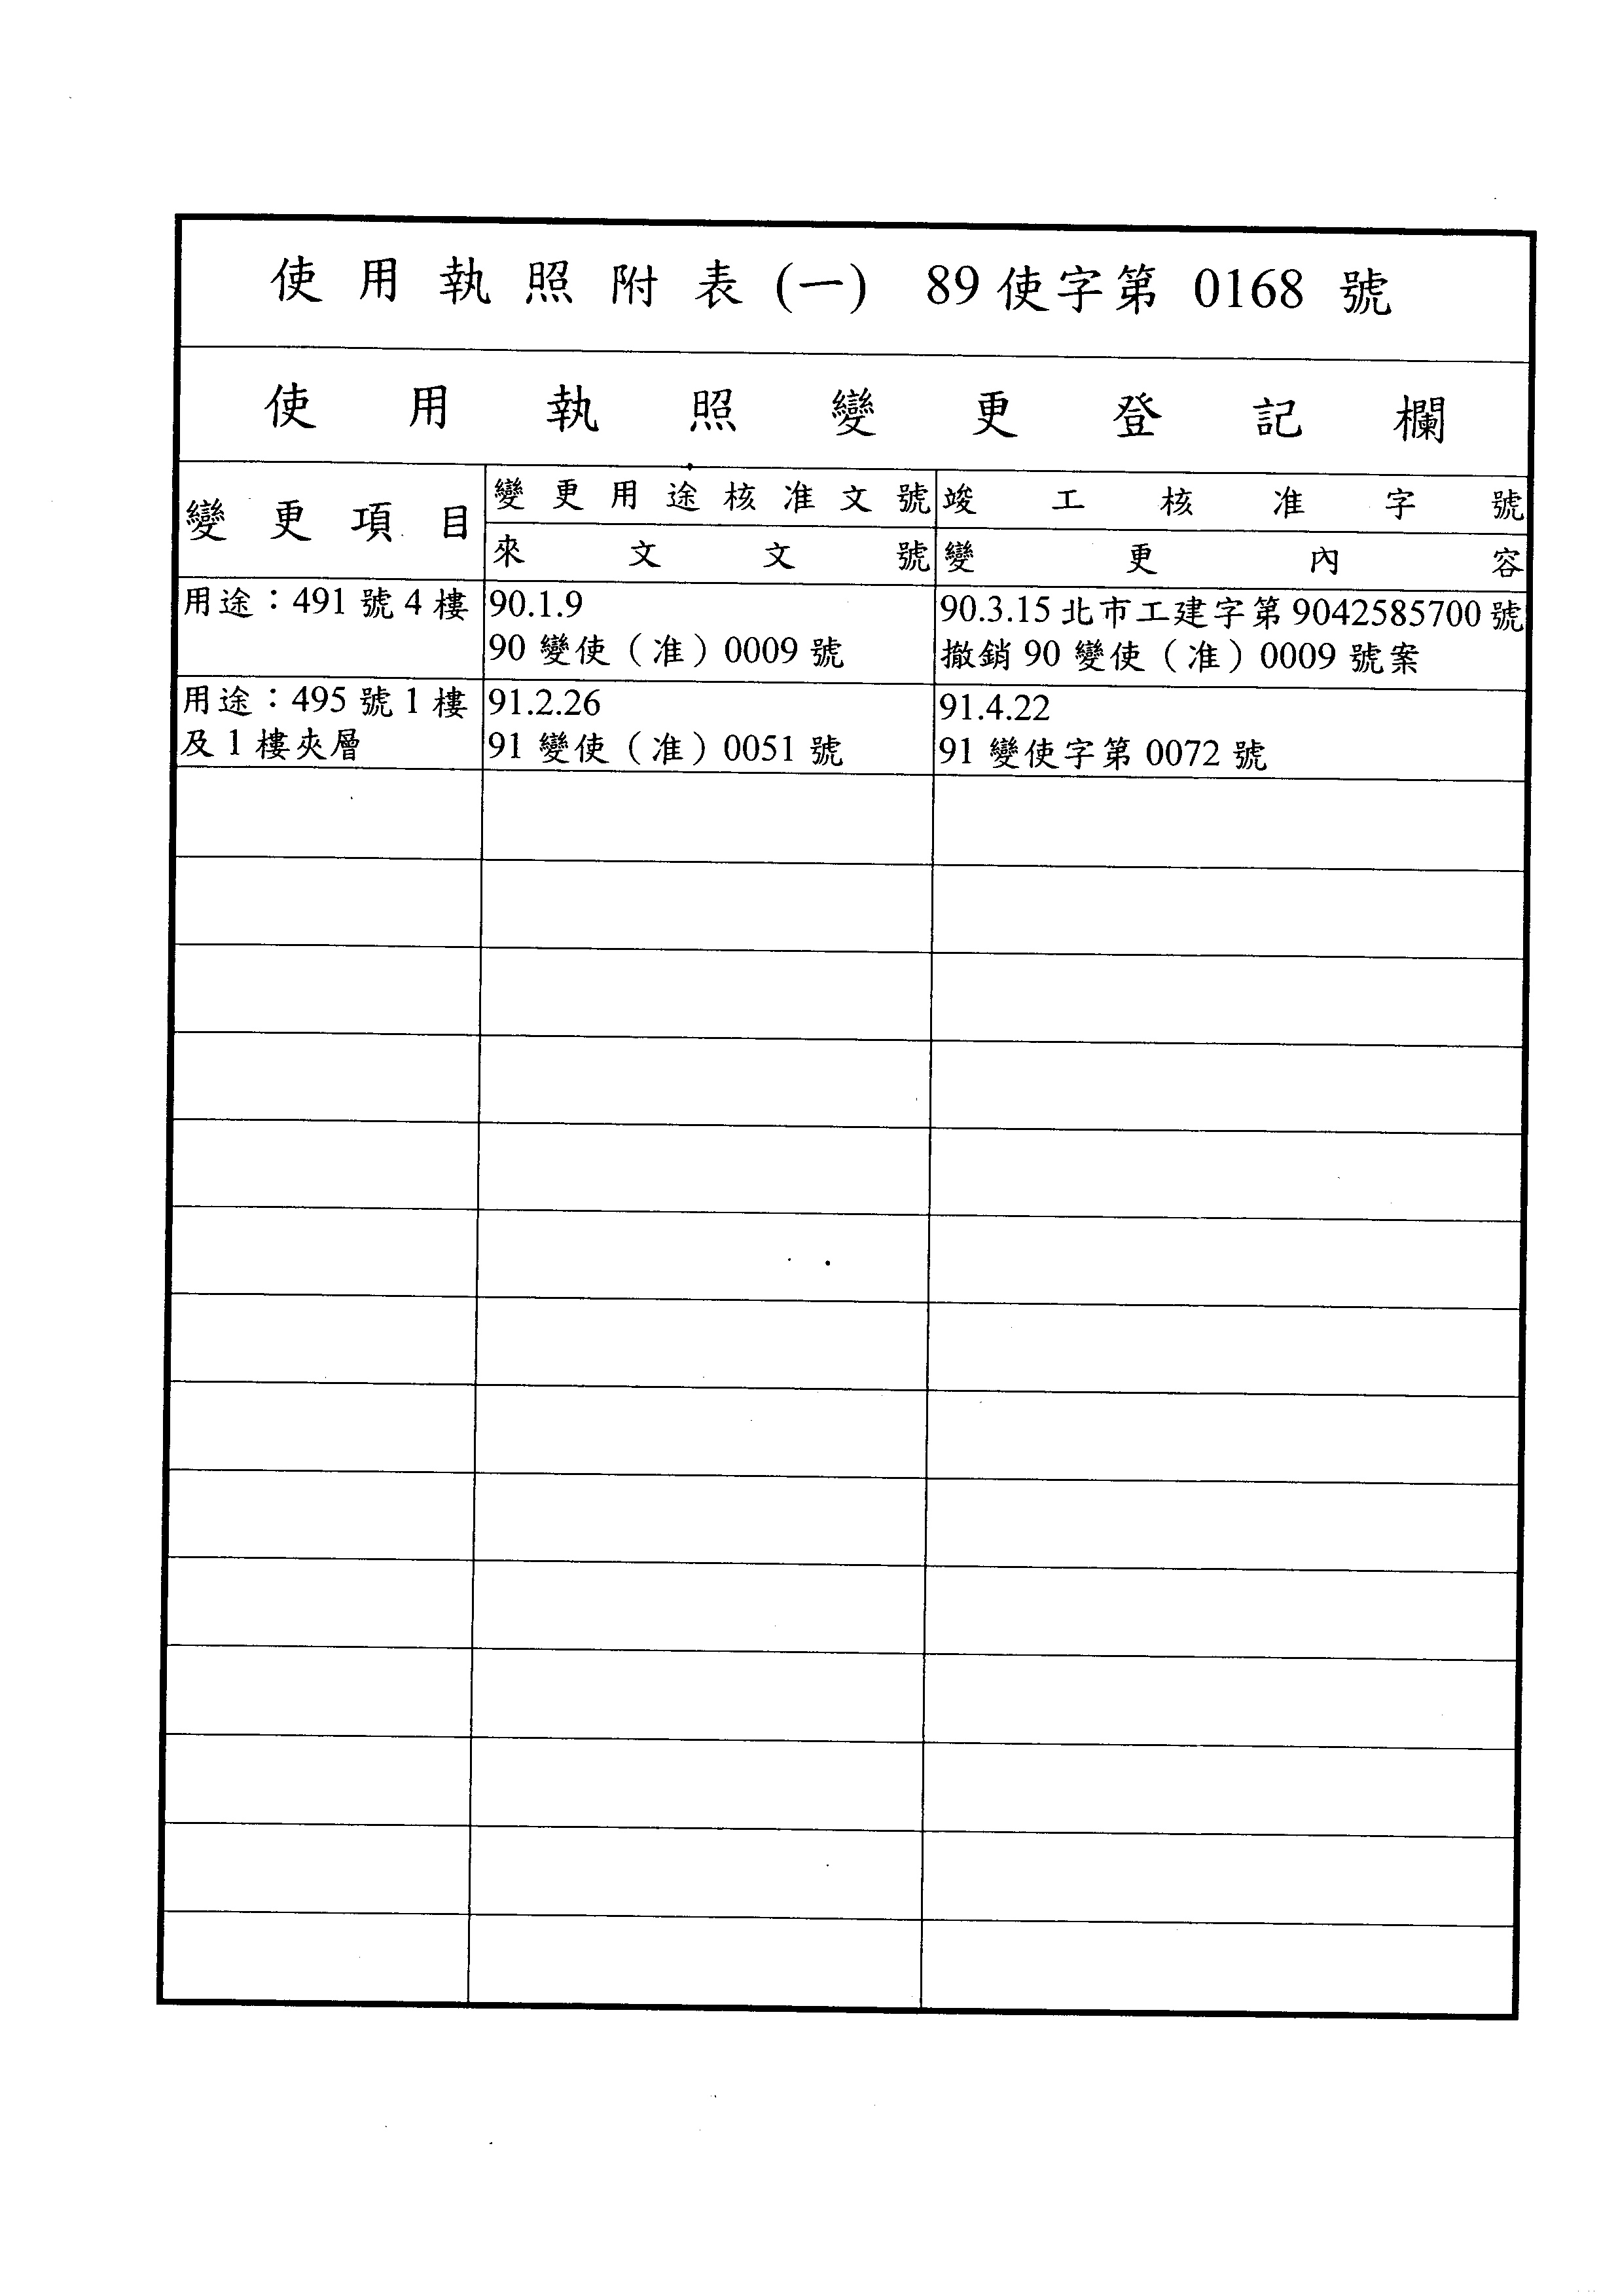 使用執照附表(一) 89使字第 0168 號
使用執照變更登記欄
變更項目
變更用途核准文號
竣工核准字號
來文文號
變更內容
用途：491 號 4 樓
90.1.9
90 變使（准）0009 號
90.3.15 北市工建字第 9042585700 號
撤銷 90 變使（准）0009 號案
用途：495 號 1 樓
及 1 樓夾層
91.2.26
91 變使（准）0051 號
91.4.22
91 變使字第 0072 號